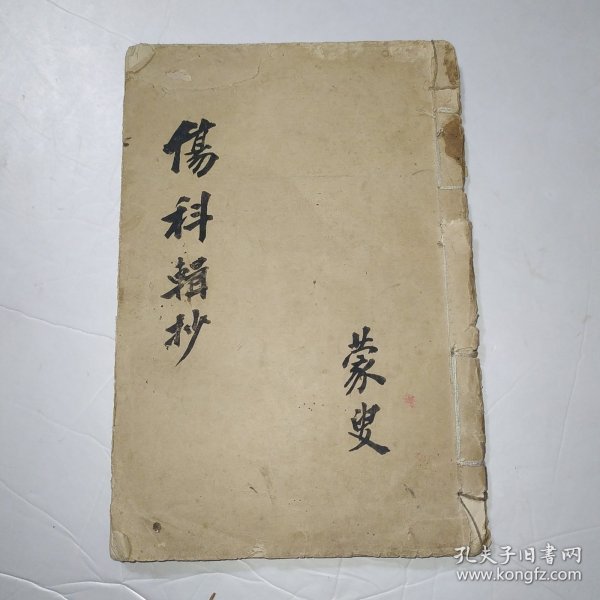 傷科輯抄
蒙叟
孔夫子旧書网
www.kongfz.com